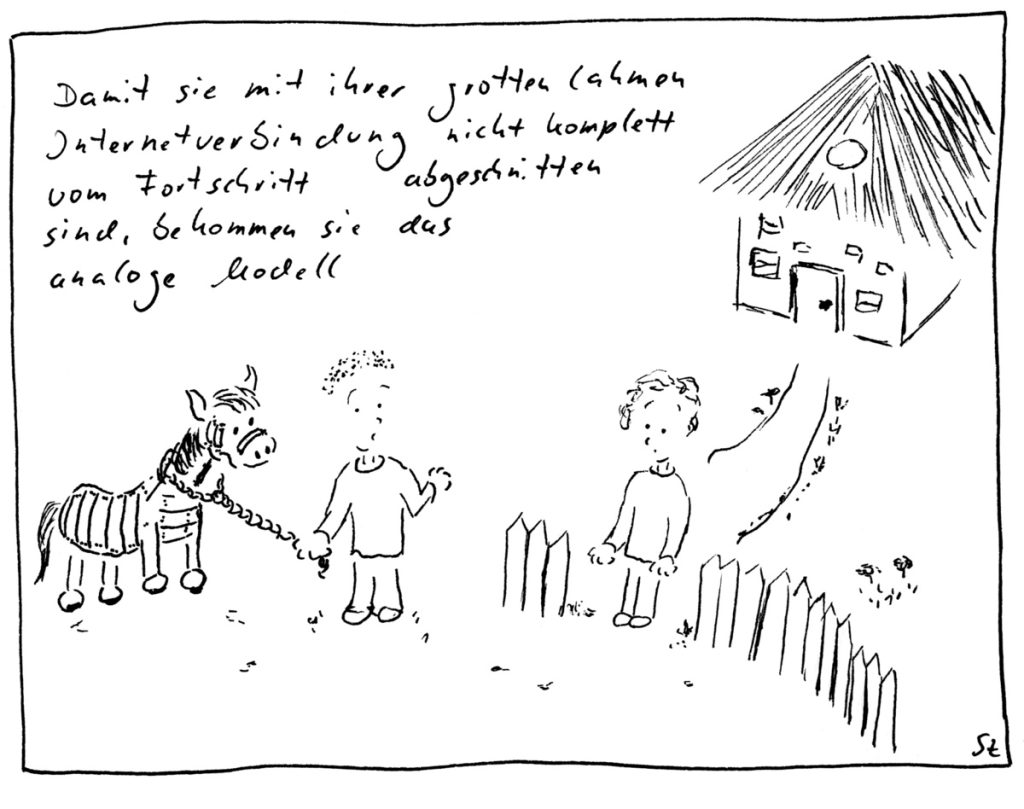 Damit sie mit ihrer grotten lahmen
Internetverbindung nicht komplett
vom Fortschritt abgeschnitten
sind, bekommen sie das
analoge Modell
SZ